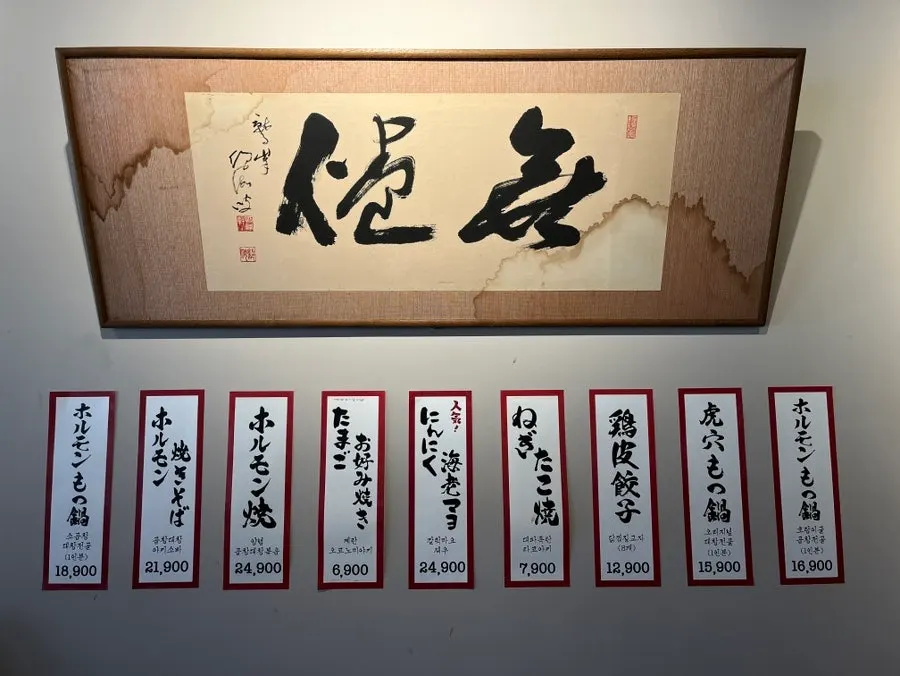 無
ホルモンもつ鍋
소곱창
대창전골
(1인분)
18,900
ホルモン
焼きそば
곱창대창
야키소바
21,900
ホルモン焼
양념
곱창대창볶음
24,900
たまご
お好み焼き
계란
오코노미야키
6,900
人気!
にんにく
海老マヨ
갈릭마요
새우
24,900
ねぎ
たこ焼
타코야키
7,900
鶏皮餃子
닭껍질교자
(8개)
12,900
虎穴もつ鍋
오리지널
대창전골
(1인분)
15,900
ホルモンもつ鍋
호랑이굴
곱창전골
(1인분)
16,900